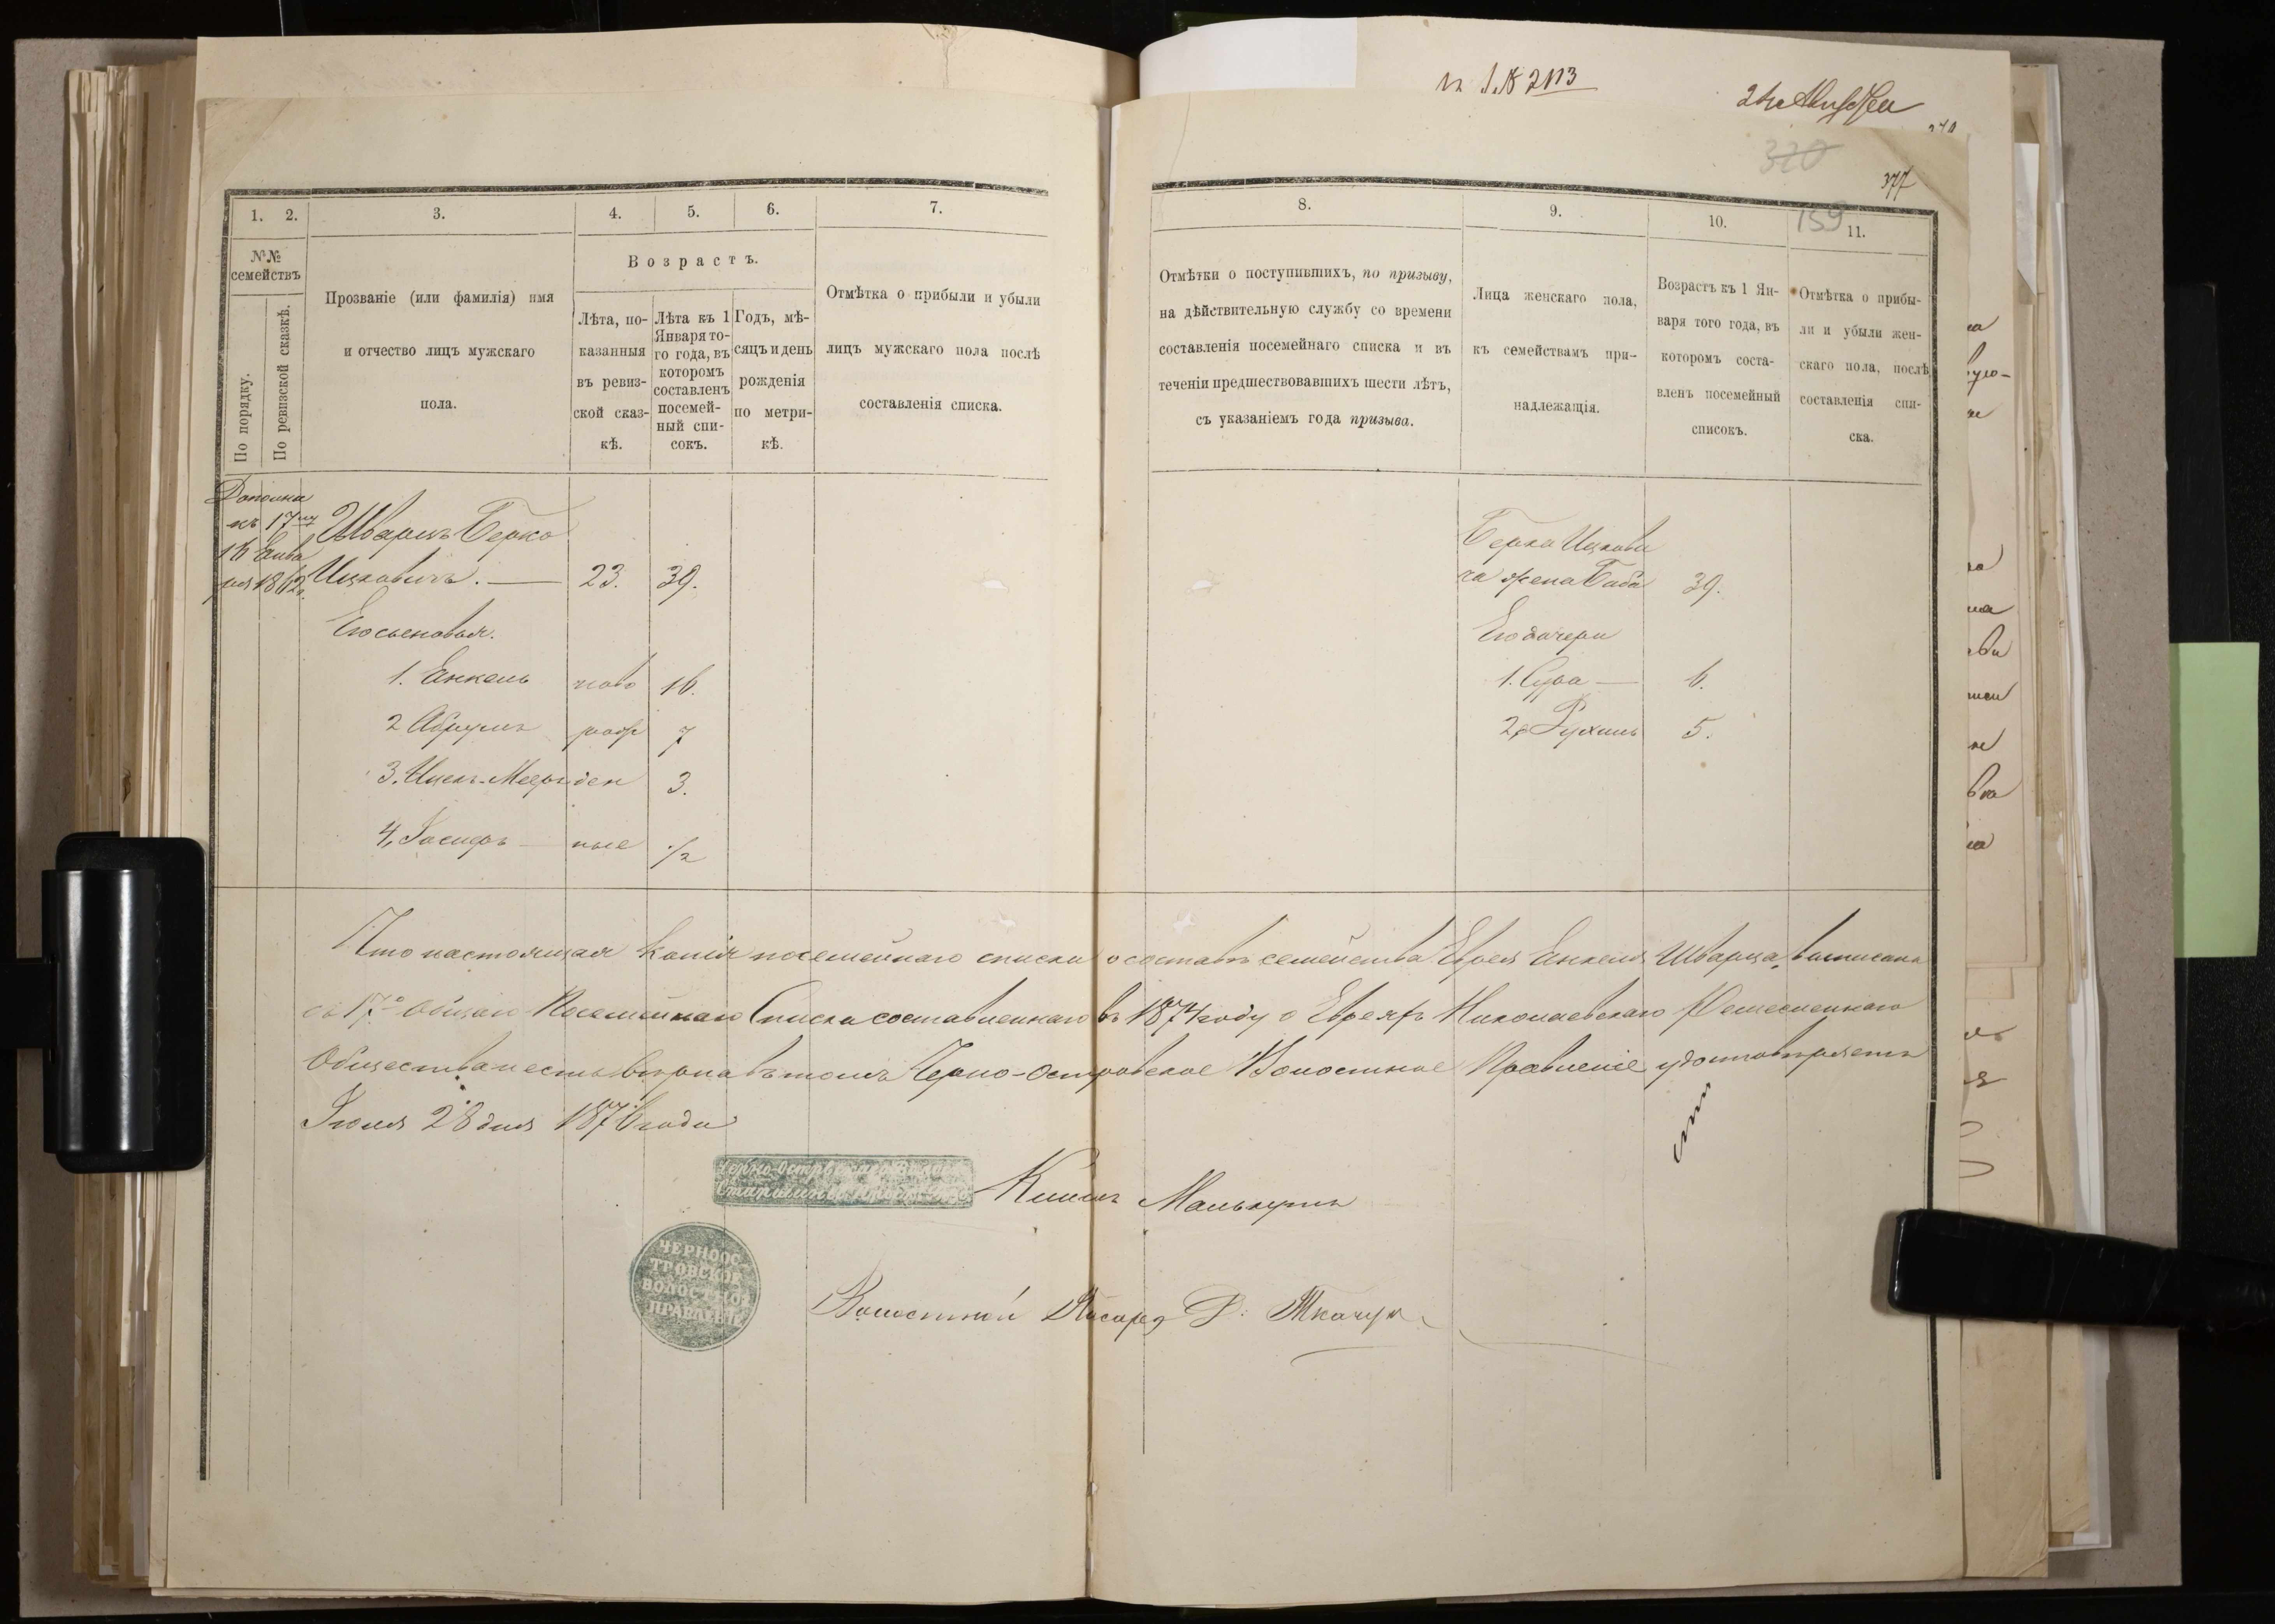 № 2113
370
377
159
1. 2. 3. 4. 5. 6. 7.
№№ семействъ
По порядку.
По ревизской сказкѣ.
Прозваніе (или фамилія) имя
и отчество лицъ мужскаго
пола.
Возрастъ.
Лѣта, по-
казанныя
въ ревиз-
ской сказ-
кѣ.
Лѣта къ 1
Января то-
го года, въ
которомъ
составленъ
посемей-
ный спи-
сокъ.
Годъ, мѣ-
сяцъ и день
рожденія
по метри-
кѣ.
Отмѣтка о прибыли и убыли
лицъ мужскаго пола послѣ
составленія списка.
8. 9. 10. 11.
Отмѣтки о поступившихъ, по призыву,
на дѣйствительную службу со времени
составленія посемейнаго списка и въ
теченіи предшествовавшихъ шести лѣтъ,
съ указаніемъ года призыва.
Лица женскаго пола,
къ семействамъ при-
надлежащія.
Возрастъ къ 1 Ян-
варя того года, въ
которомъ соста-
вленъ посемейный
списокъ.
Отмѣтка о прибы-
ли и убыли жен-
скаго пола, послѣ
составленія спи-
ска.
17
Шварцъ Берко
Ицковичъ. — 23. 39.
Его сыновья.
1. Енкель ново 16.
2 Абрумъ рож 7
3. Ицекъ-Мееръ ден 3.
4, Іосифъ — ные 1/2
Берка Ицкови
ча жена Баба 39.
Его дочери
1. Сура — 6.
2, Рухль 5.
Что настоящая копія посемейнаго списка о составѣ семейства Еврея Енкеля Шварца, выписана
съ 17º общаго Посемейнаго Списка составленнаго въ 1874 году о Евреяхъ Николаевскаго Ремесленнаго
Общества и есть вѣрна въ томъ Черно-Островское Волостное Правленіе удостовѣряетъ
Іюля 28 дня 1876 года
ЧЕРНООС
ТРОВСКОЕ
ВОЛОСТНОЕ
ПРАВЛЕНІЕ
Волостной Писарь Ткачукъ